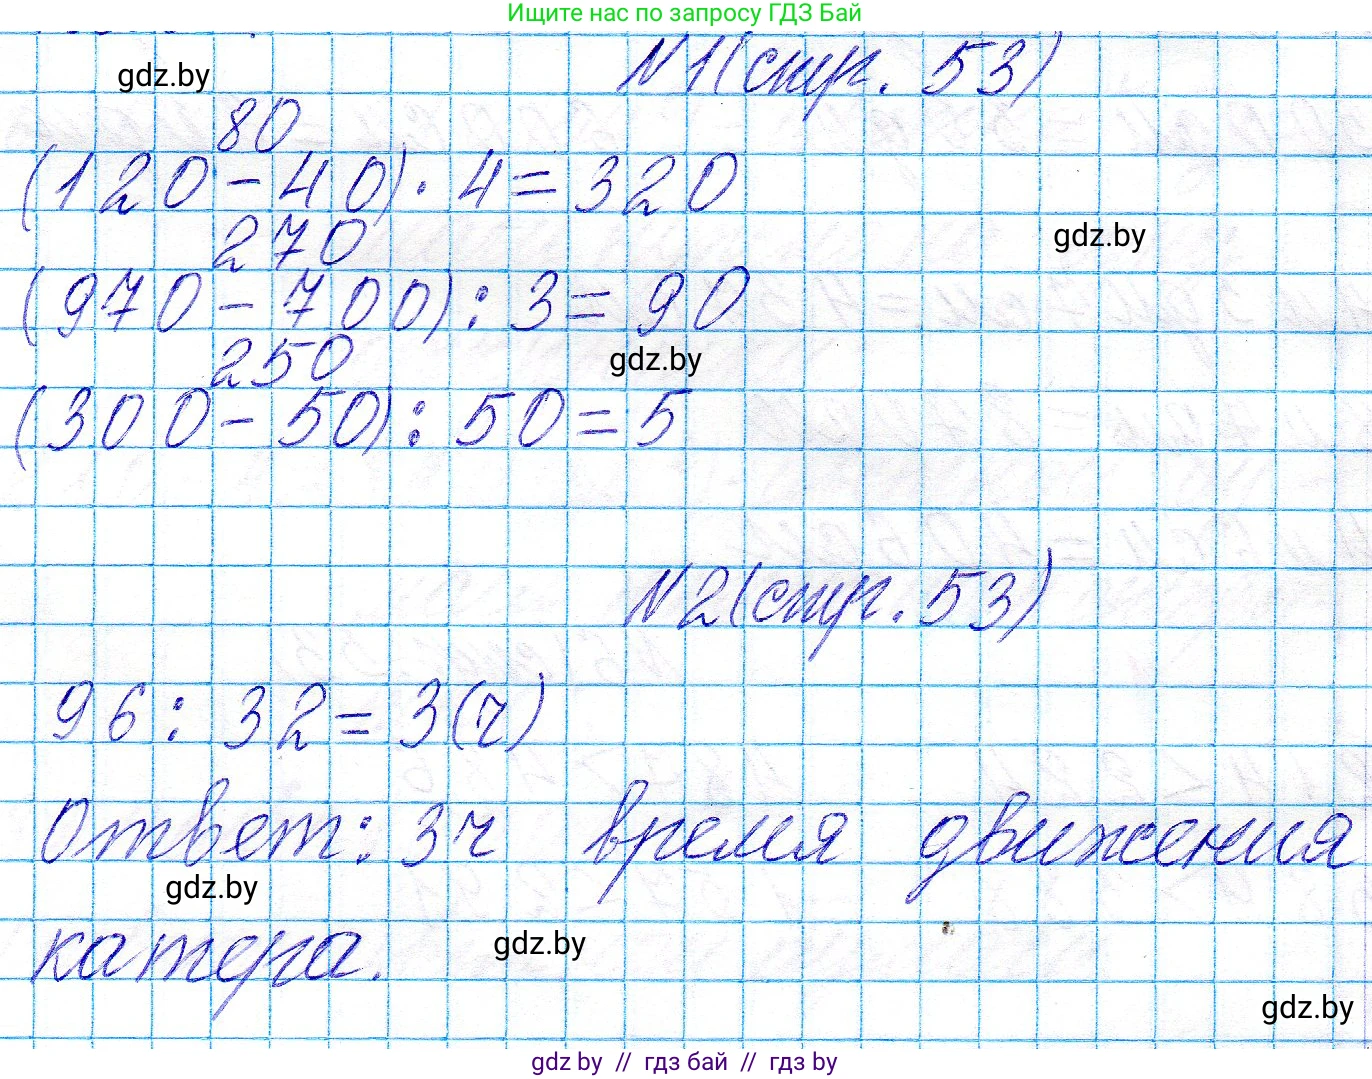 Ищите нас по запросу ГДЗ Бай
gdz.by
№1(стр. 53)
80
(120-40)·4=320
270
gdz.by
(970-700):3=90
250
gdz.by
(300-50):50=5
№2(стр. 53)
96:32=3(ч)
Ответ: 3ч время движения
gdz.by
катера.
gdz.by
gdz.by
gdz by // гдз бай // гдз by